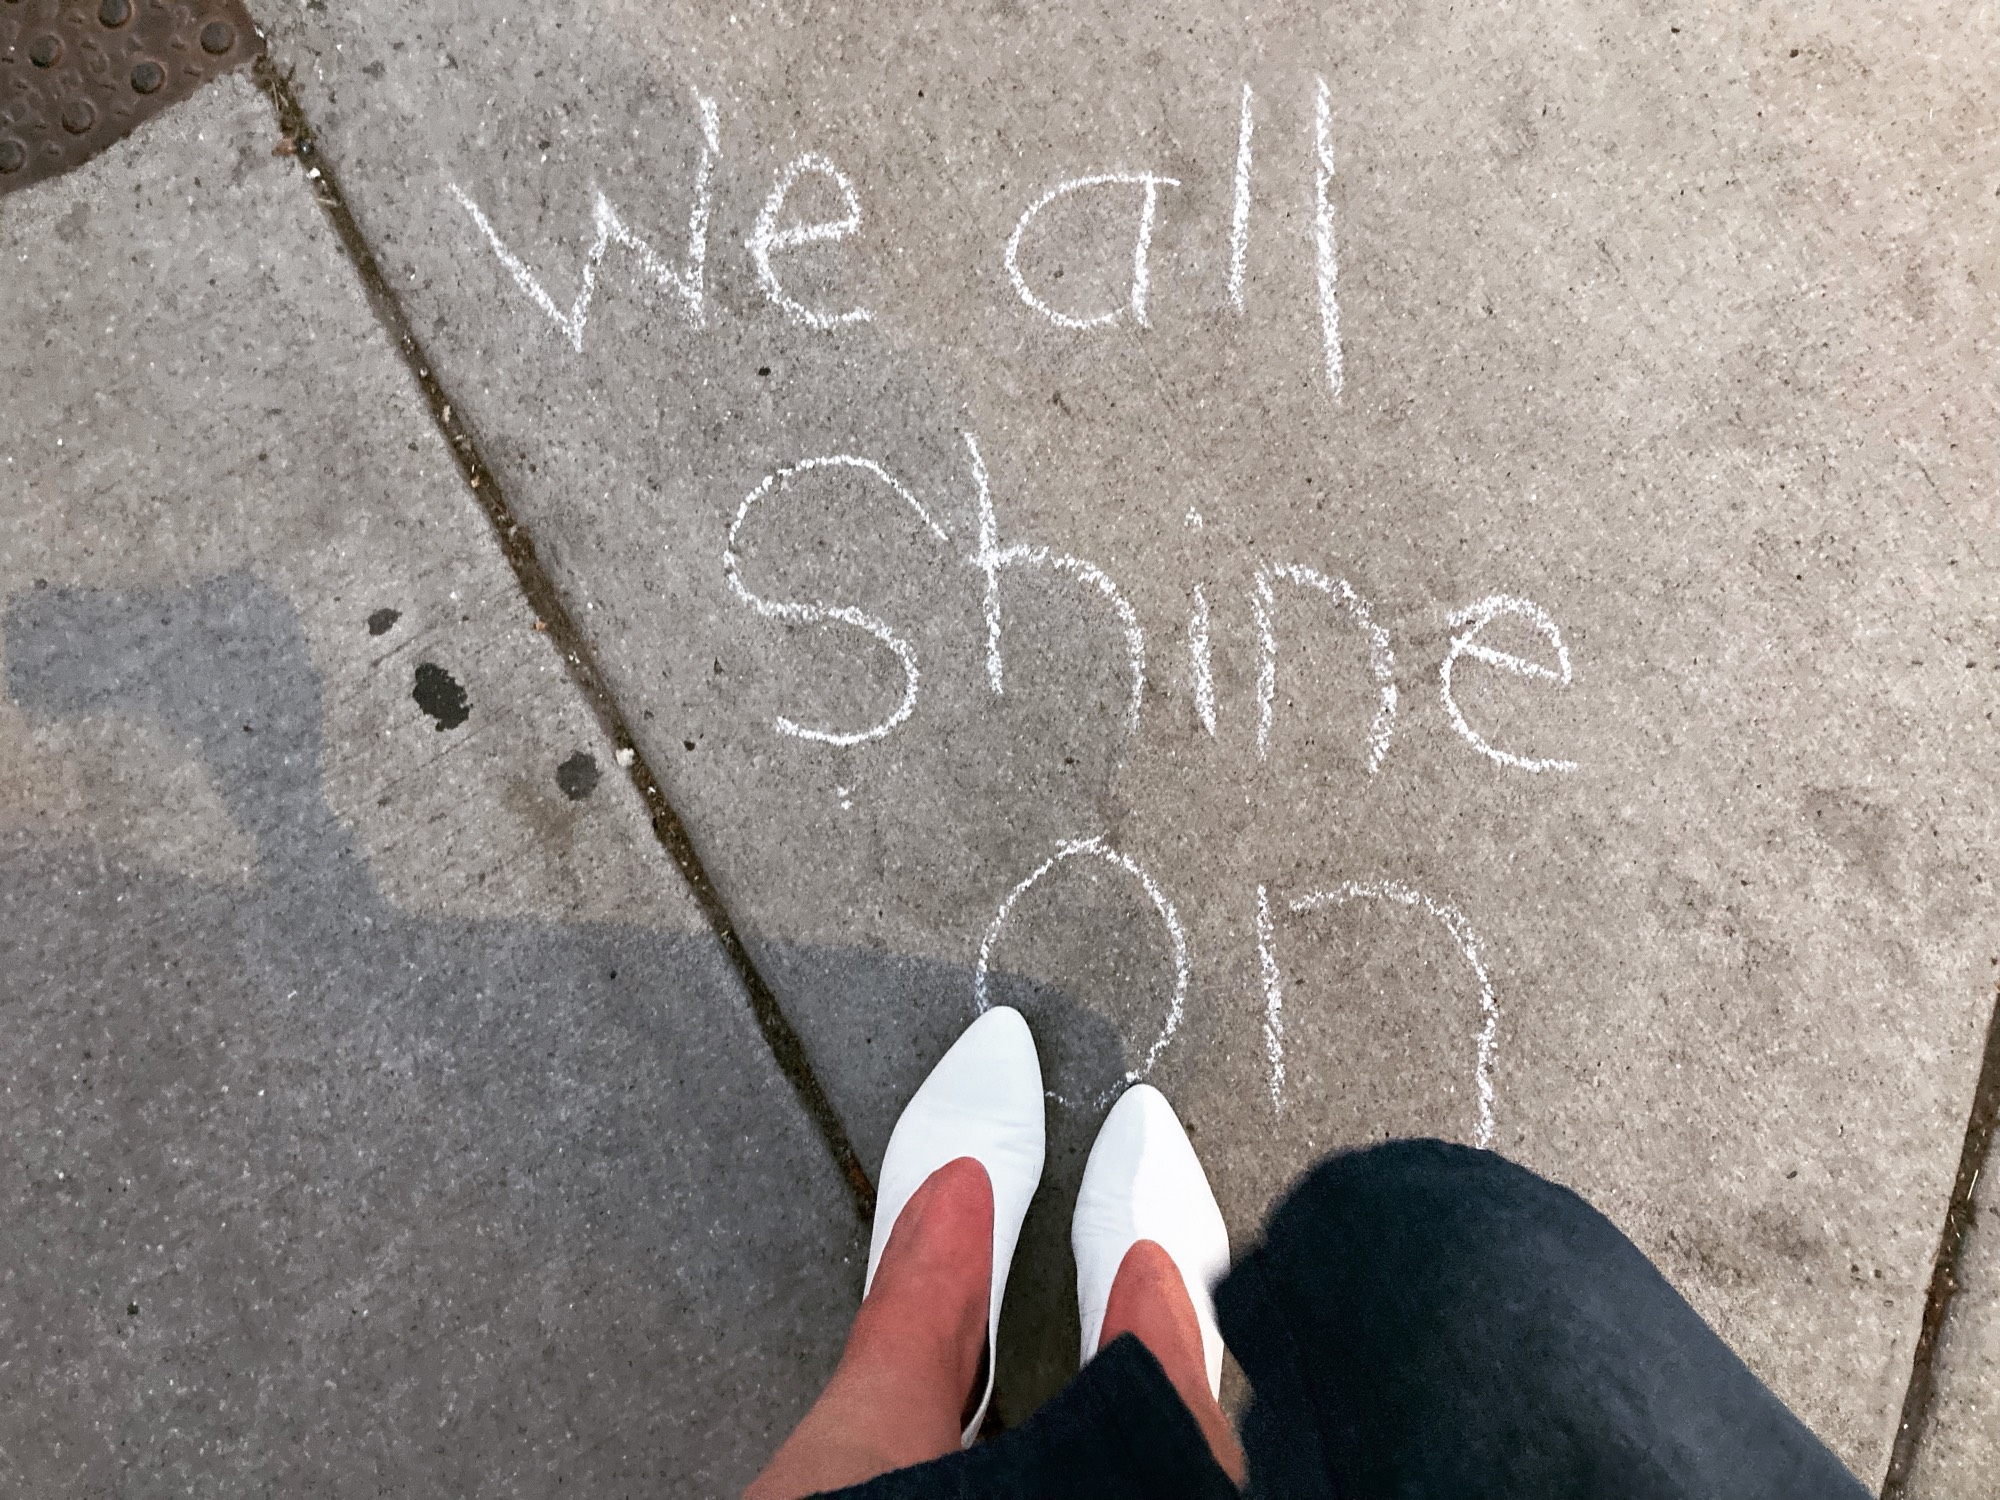 We all
Shine
on